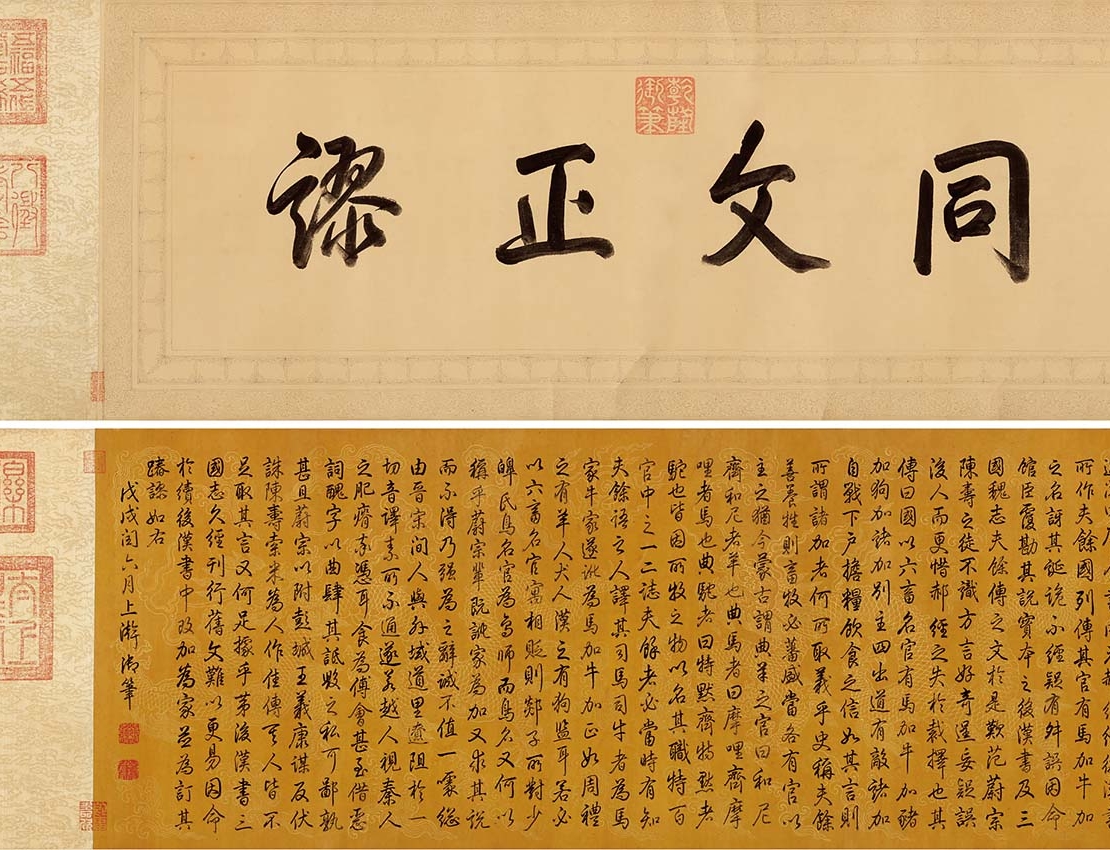 乾隆御筆
同文正謬
所作夫餘國列傳其官有馬加牛加
之名訝其誕詭不經疑有舛誤因命
館臣覆勘其說實本之後漢書及三
國魏志夫餘傳之文於是歎范蔚宗
陳壽之徒不識方言好奇逞妄疑誤
後人而更惜郝經之失於裁擇也其
傳曰國以六畜名官有馬加牛加豬
加狗加諸加別主四出道有敵諸加
自戰下戶擔糧飲食之信如其言則
所謂諸加者何所取義乎史稱夫餘
善養牲則畜牧必蕃盛當各有官以
主之猶今蒙古謂典羊之官曰和尼
齊和尼者羊也典馬者曰摩哩齊摩
哩者馬也典駝者曰特默齊特默者
駝也皆因所牧之物以名其職特百
官中之一二誌夫餘者必當時有知
夫餘語之人譯其司馬司牛者為馬
家牛家遂訛為馬加牛加正如周禮
之有羊人犬人漢之有狗監耳若必
以六畜名官寓相貶則郯子所對少
皞氏鳥名官為鳥師而鳥名又何以
稱乎蔚宗輩既訛家為加又求其說
而不得乃強為之辭誠不值一噱總
由晉宋間人與外域道里遼阻於一
切音譯素所不通遂若越人視秦人
之肥瘠率憑耳食為傅會甚至借惡
詞醜字以曲肆其詆毀之私可鄙孰
甚且蔚宗以附彭城王義康謀反伏
誅陳壽索米為人作佳傳其人皆不
足取其言又何足據乎第後漢書三
國志久經刊行舊文難以更易因命
於續後漢書中改加為家並為訂其
踳謬如右
戊戌閏六月上澣御筆